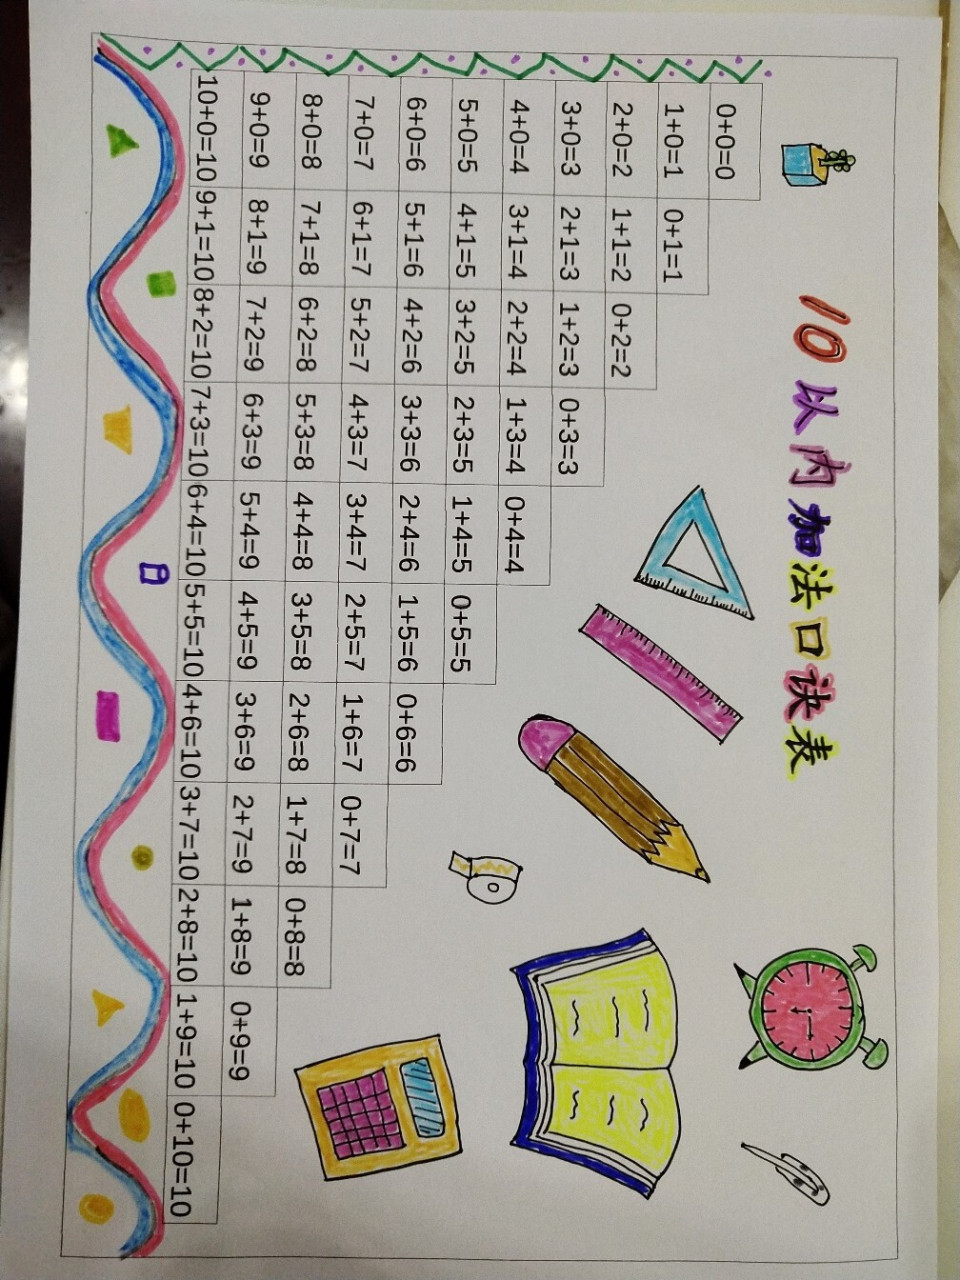 10以内加法口诀表
0+0=0
1+0=1 0+1=1
2+0=2 1+1=2 0+2=2
3+0=3 2+1=3 1+2=3 0+3=3
4+0=4 3+1=4 2+2=4 1+3=4 0+4=4
5+0=5 4+1=5 3+2=5 2+3=5 1+4=5 0+5=5
6+0=6 5+1=6 4+2=6 3+3=6 2+4=6 1+5=6 0+6=6
7+0=7 6+1=7 5+2=7 4+3=7 3+4=7 2+5=7 1+6=7 0+7=7
8+0=8 7+1=8 6+2=8 5+3=8 4+4=8 3+5=8 2+6=8 1+7=8 0+8=8
9+0=9 8+1=9 7+2=9 6+3=9 5+4=9 4+5=9 3+6=9 2+7=9 1+8=9 0+9=9
10+0=10 9+1=10 8+2=10 7+3=10 6+4=10 5+5=10 4+6=10 3+7=10 2+8=10 1+9=10 0+10=10